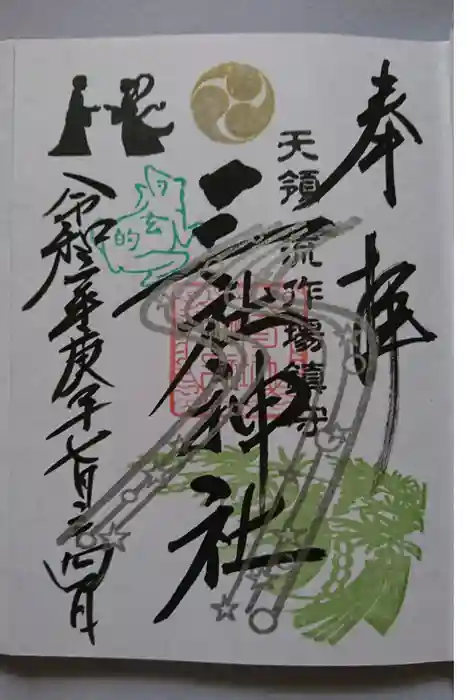 奉拝
天領 流作場鎮守
三社神社
令和二年庚子七月二四日